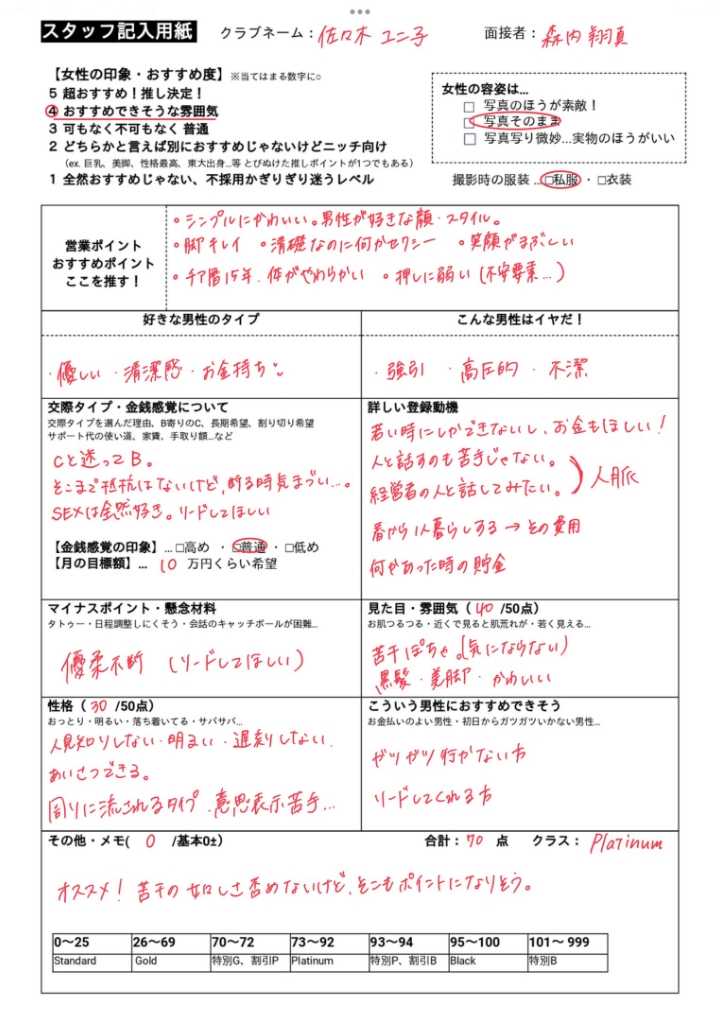 スタッフ記入用紙 クラブネーム：佐々木 ユニ子 面接者：森内 翔真
【女性の印象・おすすめ度】※当てはまる数字に○
5 超おすすめ！推し決定！
④ おすすめできそうな雰囲気
3 可もなく不可もなく 普通
2 どちらかと言えば別におすすめじゃないけどニッチ向け
（ex. 巨乳、美脚、性格最高、東大出身…等 とびぬけた推しポイントが1つでもある）
1 全然おすすめじゃない、不採用かぎりぎり迷うレベル
女性の容姿は…
□ 写真のほうが素敵！
□ 写真そのまま
□ 写真写り微妙…実物のほうがいい
撮影時の服装 …□私服 ・ □衣装
営業ポイント
おすすめポイント
ここを推す！
・シンプルにかわいい。男性が好きな顔・スタイル。
・脚キレイ ・清礎なのに何かセクシー ・笑顔がまぶしい
・チア暦15年、体がやわらかい ・押しに弱い（不安要素…）
好きな男性のタイプ
・優しい ・清潔感 ・お金持ち
こんな男性はイヤだ！
・強引 ・高圧的 ・不潔
交際タイプ・金銭感覚について
交際タイプを選んだ理由、B寄りのC、長期希望、割り切り希望
サポート代の使い道、家賃、手取り額…など
Cと迷ってB。
そこまで抵抗はないけど、断る時気まづい…。
SEXは全然好き。リードしてほしい
【金銭感覚の印象】…□高め ・□普通・ □低め
【月の目標額】… 10 万円くらい希望
詳しい登録動機
若い時にしかできないし、お金もほしい！
人と話すのも苦手じゃない。
経営者の人と話してみたい。
人脈
春から1人暮らしする→その費用
何かあった時の貯金
マイナスポイント・懸念材料
タトゥー・日程調整しにくそう・会話のキャッチボールが困難…
優柔不断 （リードしてほしい）
見た目・雰囲気（ 40 /50点）
お肌つるつる・近くで見ると肌荒れが・若く見える…
若干ぽちゃ。（気にならない）
黒髪・美脚・かわいい
性格（ 30 /50点）
おっとり・明るい・落ち着いてる・サバサバ…
人見知りしない・明るい・遅刻しない.
あいさつできる。
周りに流されるタイプ．意思表示苦手…
こういう男性におすすめできそう
お金払いのよい男性・初日からガツガツいかない男性…
ガツガツ行かない方
リードしてくれる方
その他・メモ( 0 /基本0±) 合計：70 点 クラス：Platinum
オススメ！若干の 否めないけど、そこもポイントになりそう。
0〜25 26〜69 70〜72 73〜92 93〜94 95〜100 101〜 999
Standard Gold 特別G、割引P Platinum 特別P、割引B Black 特別B